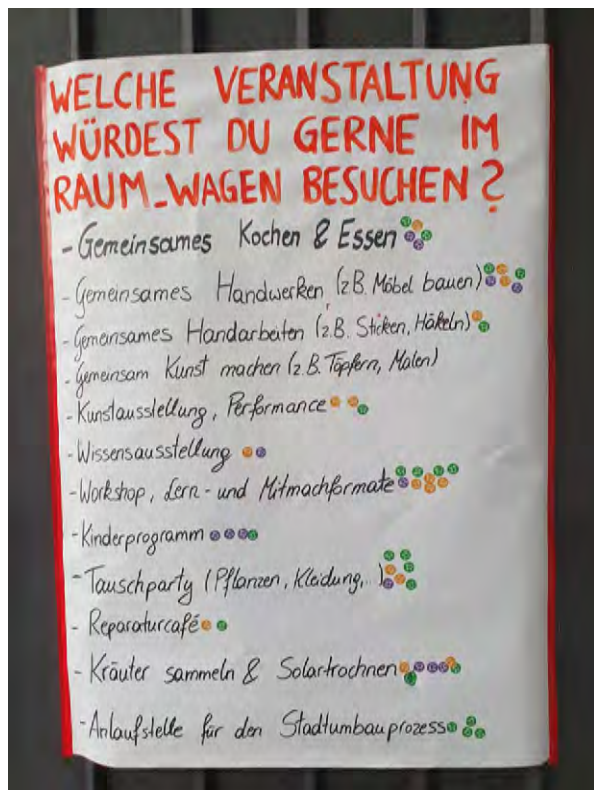 WELCHE VERANSTALTUNG
WÜRDEST DU GERNE IM
RAUM_WAGEN BESUCHEN?
- Gemeinsames Kochen & Essen
- Gemeinsames Handwerken (z.B. Möbel bauen)
- Gemeinsames Handarbeiten (z.B. Sticken, Häkeln)
- Gemeinsam Kunst machen (z.B. Töpfern, Malen)
- Kunstausstellung, Performance
- Wissensausstellung
- Workshop, Lern- und Mitmachformate
- Kinderprogramm
- Tauschparty (Pflanzen, Kleidung,...)
- Reparaturcafé
- Kräuter sammeln & Solartrochnen
- Anlaufstelle für den Stadtumbauprozess